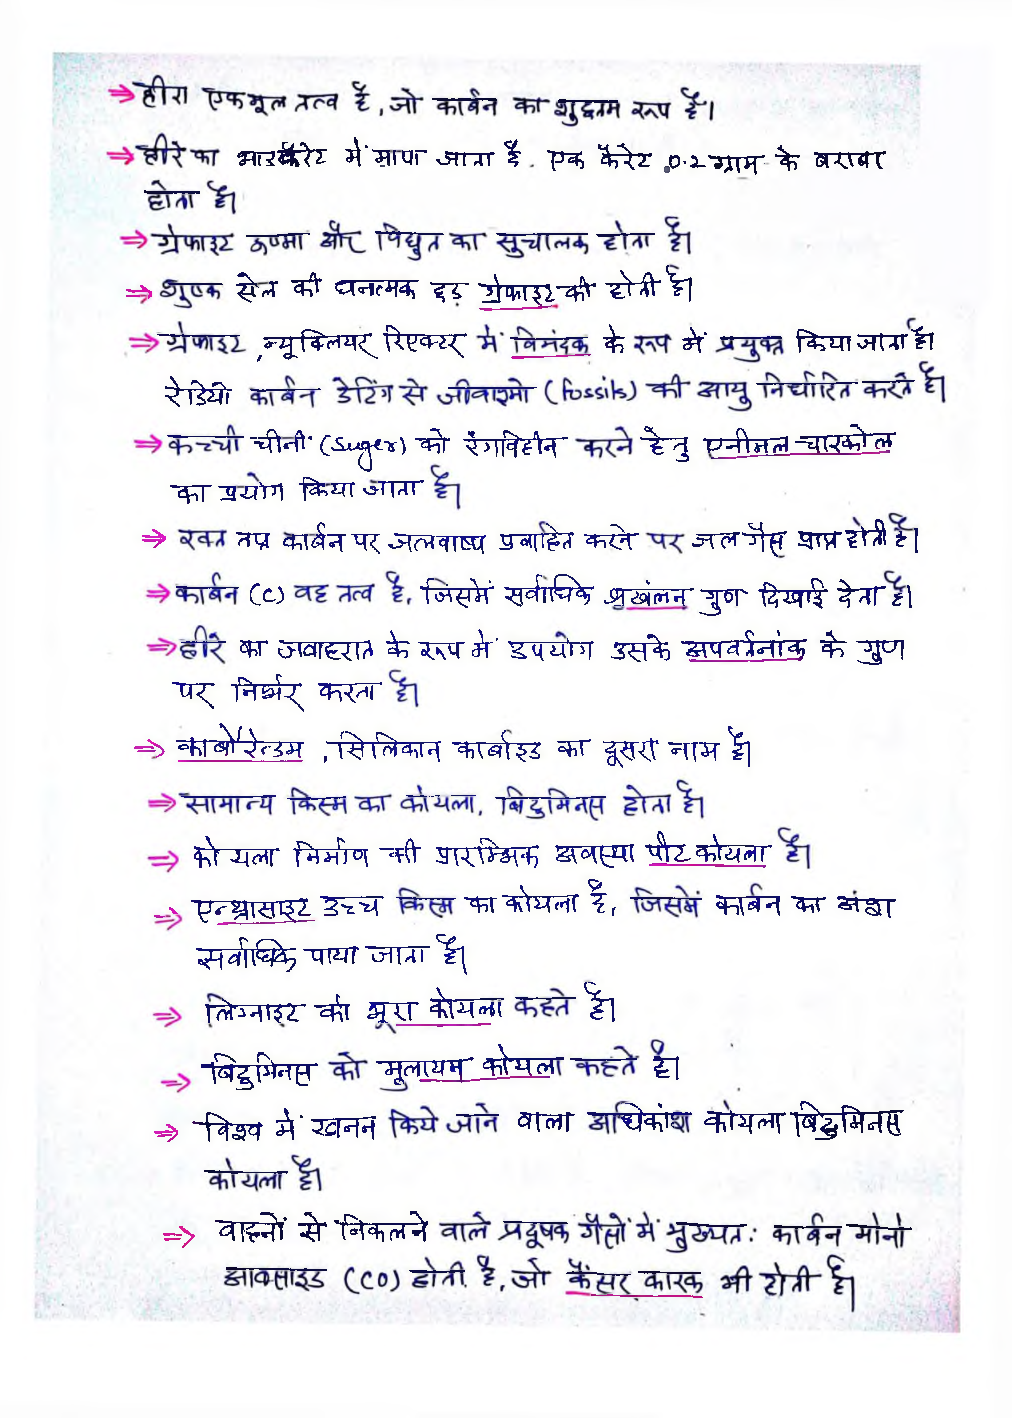 ⇒ हीरा एक मूल तत्व है, जो कार्बन का शुद्धतम रूप है।
⇒ हीरे का भार कैरेट में मापा जाता है. एक कैरेट 0.2 ग्राम के बराबर
होता है।
⇒ ग्रेफाइट ऊष्मा और विद्युत का सुचालक होता है।
⇒ शुष्क सेल की धनात्मक छड़ ग्रेफाइट की होती है।
⇒ ग्रेफाइट, न्यूक्लियर रिएक्टर में विमंदक के रूप में प्रयुक्त किया जाता है।
रेडियो कार्बन डेटिंग से जीवाश्मो (fossils) की आयु निर्धारित करते है।
⇒ कच्ची चीनी (Suger) को रंगविहीन करने हेतु एनीमल-चारकोल
का प्रयोग किया जाता है।
⇒ रक्त तप्त कार्बन पर जलवाष्प प्रवाहित करने पर जल गैस प्राप्त होती है।
⇒ कार्बन (C) वह तत्व है, जिसमें सर्वाधिक श्रृखंलन गुण दिखाई देता है।
⇒ हीरे का जवाहरात के रूप में उपयोग उसके अपवर्तनांक के गुण
पर निर्भर करता है।
⇒ कार्बोरेन्डम, सिलिकान कार्बाइड का दूसरा नाम है।
⇒ सामान्य किस्म का कोयला, बिटुमिनस होता है।
⇒ कोयला निर्माण की प्रारम्भिक अवस्था पीट कोयला है।
⇒ एन्थ्रासाइट उच्च किस्म का कोयला है, जिसमें कार्बन का अंश
सर्वाधिक पाया जाता है।
⇒ लिग्नाइट को भूरा कोयला कहते है।
⇒ बिटुमिनस को मुलायम कोयला कहते है।
⇒ विश्व में खनन किये जाने वाला अधिकांश कोयला बिटुमिनस
कोयला है।
⇒ वाहनों से निकलने वाले प्रदूषक गैसों में मुख्यत: कार्बन मोनो
आक्साइड (CO) होती है, जो कैंसर कारक भी होती है।